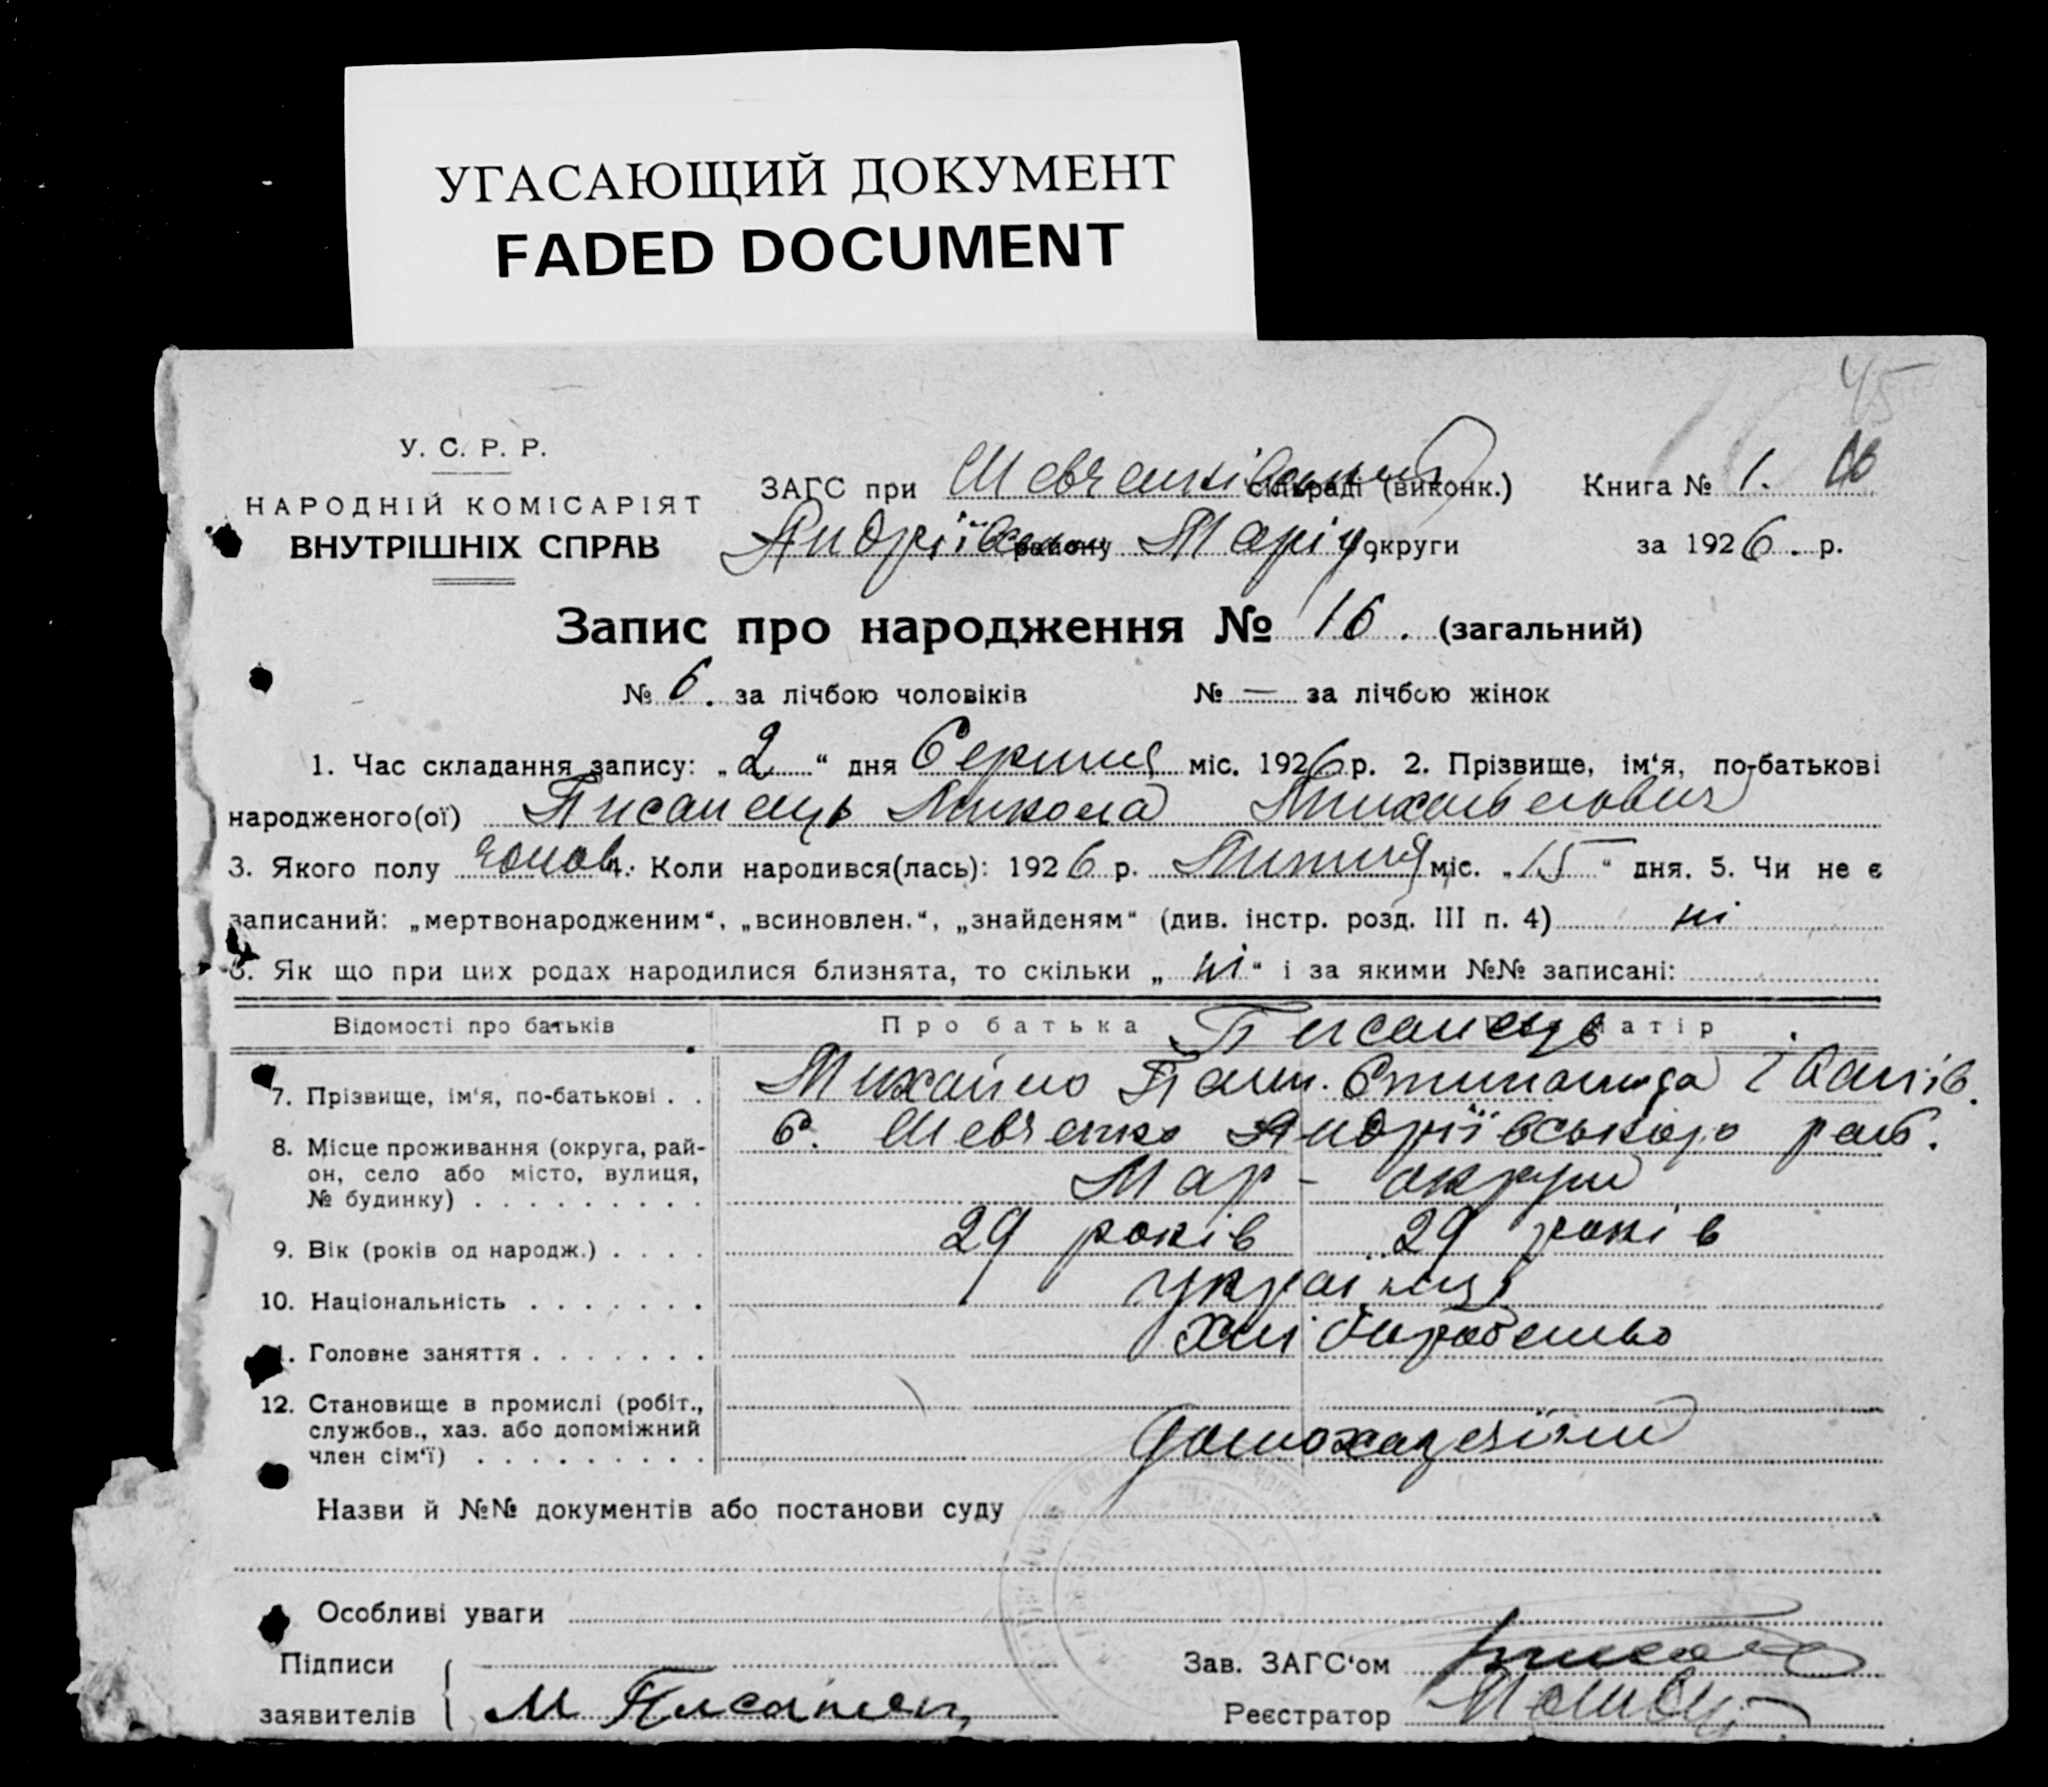 УГАСАЮЩИЙ ДОКУМЕНТ
FADED DOCUMENT
45
У. С. Р. Р.
НАРОДНІЙ КОМІСАРІЯТ
ВНУТРІШНІХ СПРАВ
ЗАГС при Шевченківській сільраді (виконк.) Книга № 1. 16
Андріївськ району Маріу. округи за 1926. р.
Запис про народження № 16. (загальний)
№ 6. за лічбою чоловіків № — за лічбою жінок
1. Час складання запису: „2“ дня Серпня міс. 1926 р. 2. Прізвище, ім'я, по-батькові
народженого(ої) Писанець Микола Михайлович
3. Якого полу чолов. 4. Коли народився(лась): 1926 р. Липня міс. „15“ дня. 5. Чи не є
записаний: „мертвонародженим“, „всиновлен.“, „знайденям“ (див. інстр. розд. III п. 4) ні
6. Як що при цих родах народилися близнята, то скільки „ні“ і за якими №№ записані:
Відомості про батьків Про батька Писанець матір
7. Прізвище, ім'я, по-батькові . . Михайло Іванів.
8. Місце проживання (округа, рай- с. Шевченко Андріївського рай.
он, село або місто, вулиця, Мар - округи
№ будинку) . . . . . . . . .
9. Вік (років од народж.) . . . . 29 років 29 років
10. Національність . . . . . . . українці
11. Головне заняття . . . . . . . хліборобство
12. Становище в промислі (робіт.,
службов., хаз. або допоміжний
член сім'ї) . . . . . . . . .
Назви й №№ документів або постанови суду
Особливі уваги
Підписи Зав. ЗАГС'ом
заявителів М Писанец Реєстратор